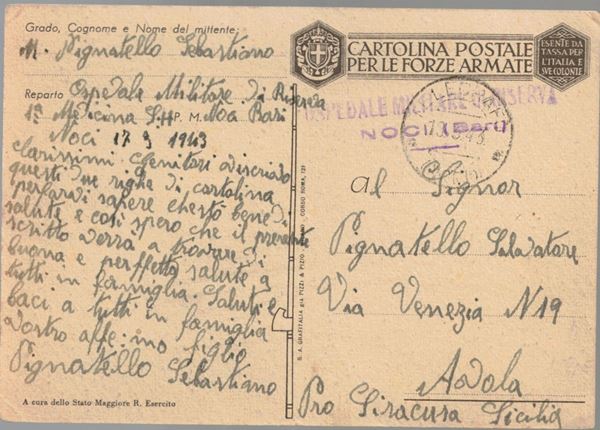 Grado, Cognome e Nome del mittente:
M. Pignatello Sebastiano
Reparto Ospedale Militare di Riserva
1a Medicina P. M. Noci Bari
Noci 17 3 1943
Clarissimi Genitori viscrivo
questi due righe di cartolina
perfarvi sapere chesto bene di
salute e così spero che il presente
scritto verrà a trovare di
buona e perffetta salute a
tutti in famiglia. Saluti e
baci a tutti in famiglia
vostro affe.mo figlio
Pignatello Sebastiano
A cura dello Stato Maggiore R. Esercito
S. A. GRAFITALIA già PIZZI & PIZIO - MILANO - CORSO ROMA, 121
CARTOLINA POSTALE
PER LE FORZE ARMATE
ESENTE DA
TASSA PER
L'ITALIA E
SVE COLONIE
OSPEDALE MILITARE DI RISERVA
NOCI (Bari)
al Signor
Pignatello Salvatore
Via Venezia N 19
Avola
Pro Siracusa Sicilia